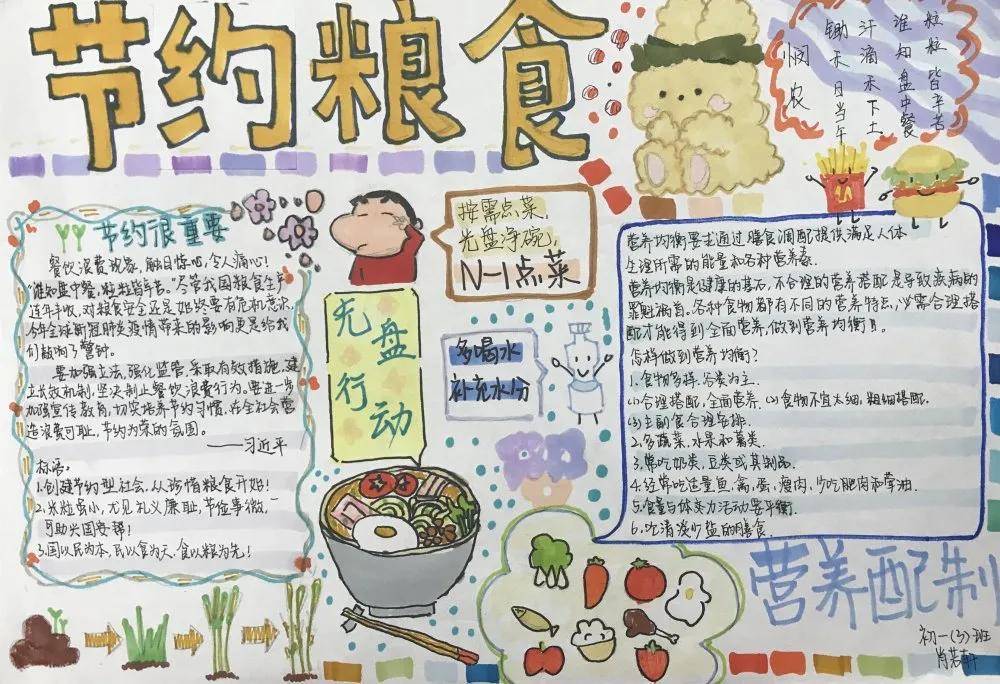 节约粮食
悯农
锄禾日当午
汗滴禾下土
谁知盘中餐
粒粒皆辛苦
节约很重要
餐饮浪费现象,触目惊心,令人痛心!
“谁知盘中餐,粒粒皆辛苦。”尽管我国粮食生产
连年丰收,对粮食安全还是始终要有危机意识,
今年全球新冠肺炎疫情带来的影响更是给我
们敲响了警钟。
要加强立法,强化监管,采取有效措施,建
立长效机制,坚决制止餐饮浪费行为。要进一步
加强宣传教育,切实培养节约习惯,在全社会营
造浪费可耻,节约为荣的氛围。
——习近平
标语:
1.创建节约型社会,从珍惜粮食开始!
2.米粒虽小,尤见礼义廉耻,节俭事微,
可助兴国安邦!
3.国以民为本,民以食为天,食以粮为先!
按需点菜,
光盘净碗,
N-1点菜
光盘
行动
多喝水
补充水份
营养均衡要求通过膳食调配提供满足人体
生理所需的能量和各种营养素.
营养均衡是健康的基石,不合理的营养搭配是导致疾病的
罪魁祸首。各种食物都有不同的营养特点,必需合理搭
配才能得到全面营养,做到营养均衡。
怎样做到营养均衡?
1.食物多样,谷类为主.
(1)合理搭配,全面营养.(2)食物不宜太细,粗细搭配.
(3)主副食合理安排.
2.多蔬菜、水果和薯类.
3.常吃奶类、豆类或其制品.
4.经常吃适量鱼,禽,蛋,瘦肉,少吃肥肉和荤油.
5.食量与体支力活动要平衡.
6.吃清淡少盐的膳食.
营养配制
初一(3)班
肖若轩